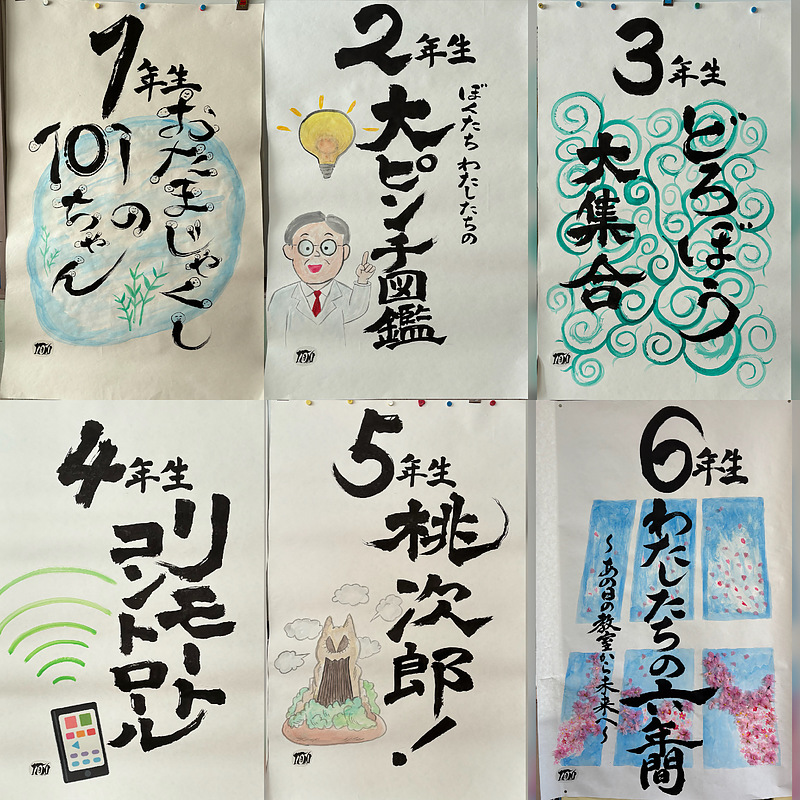 1年生
おたまじゃくし
101の
ちゃん
2年生
ぼくたち わたしたちの
大ピンチ図鑑
3年生
どろぼう
大集合
4年生
リモート
コントロール
5年生
桃次郎!
6年生
わたしたちの六年間
～あの日の教室から未来へ～